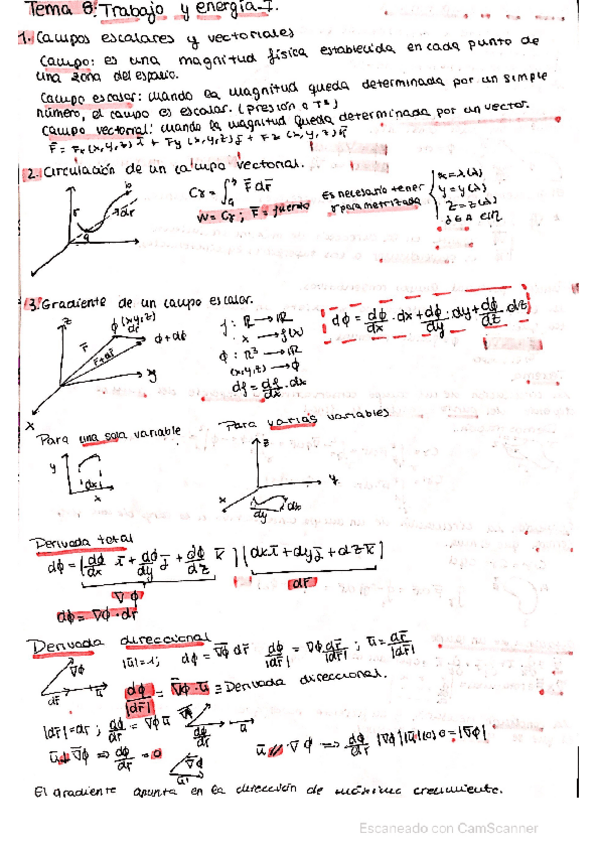 Tema 8: Trabajo y energía-I.
1. Campos escalares y vectoriales
Campo: es una magnitud física establecida en cada punto de
una zona del espacio.
Campo escalar: cuando la magnitud queda determinada por un simple
número, el campo es escalar. (presión o Tª)
Campo vectorial: cuando la magnitud queda determinada por un vector.
F̄ = Fx (x,y,z) ī + Fy (x,y,z) j̄ + Fz (x,y,z) k̄
2. Circulación de un campo vectorial.
Cr = ∫ₐᵇ F̄ dr̄
W = Cr ; F̄ = fuerza
Es necesario tener
r parametrizada
x = x(λ)
y = y(λ)
z = z(λ)
b
r
dr̄
a
3. Gradiente de un campo escalar.
z
ϕ (x,y,z)
dr̄
ϕ + dϕ
r̄
r̄+dr̄
y
x
f : R → R
x → f(x)
ϕ : R³ → R
(x,y,z) → ϕ
df = df/dx · dx
dϕ = dϕ/dx · dx + dϕ/dy · dy + dϕ/dz · dz
Para una sola variable
Para varias variables
y
dx
x
z
y
x
dy
dx
Derivada total
dϕ = [dϕ/dx ī + dϕ/dy j̄ + dϕ/dz k̄] [dx ī + dy j̄ + dz k̄]
∇ϕ
dr̄
dϕ = ∇ϕ · dr̄
Derivada direccional
|ū| = 1; dϕ = ∇̄ϕ dr̄ dϕ/|dr̄| = ∇ϕ dr̄/|dr̄| ; ū = dr̄/|dr̄|
∇̄ϕ
dr̄
ū
dϕ/|dr̄| = ∇̄ϕ · ū ≡ Derivada direccional.
|dr̄| = dr ; dϕ/dr = ∇̄ϕ ū
∇̄ϕ
dϕ/dr
ū
ū ⊥ ∇̄ϕ ⇒ dϕ/dr = 0
∇̄ϕ
ū
ū ∥ ∇ϕ ⇒ dϕ/dr |∇ϕ| |ū| cos 0 = |∇̄ϕ|
El gradiente apunta en la dirección de máximo crecimiento.
Escaneado con CamScanner